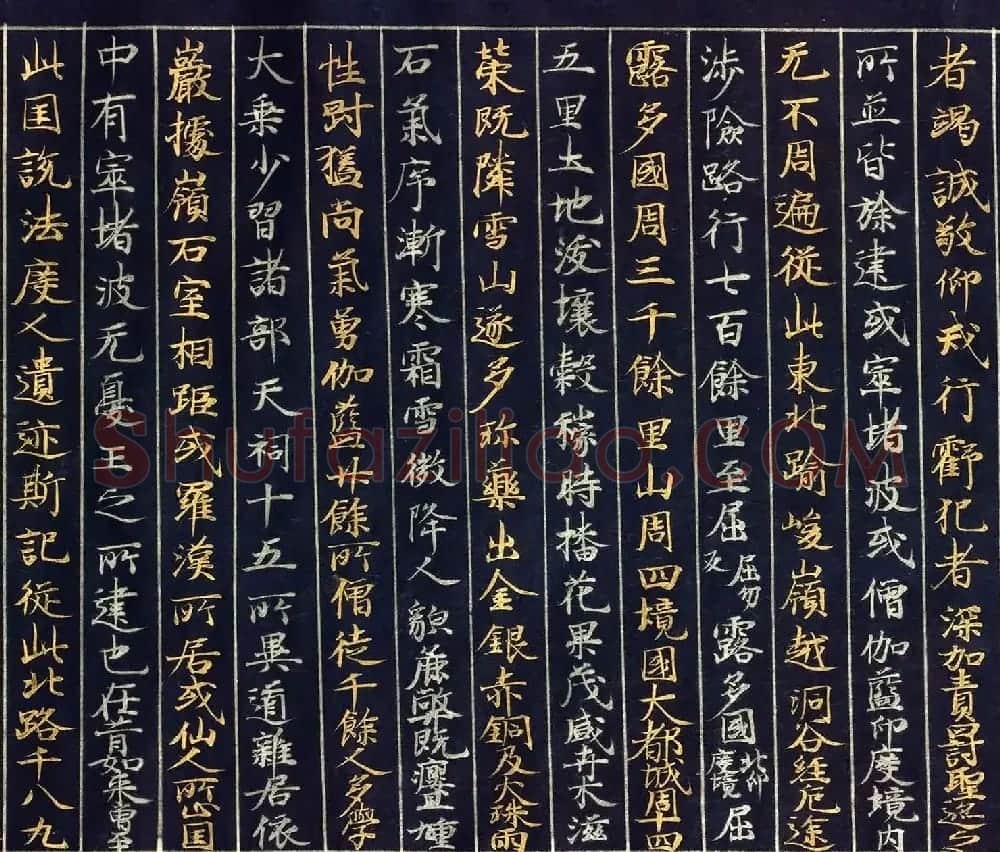 者竭誠敬仰戒行虧犯者深加責罰聖迹之
所並皆旌建或窣堵波或僧伽藍印度境内
无不周遍從此東北踰峻嶺越洞谷經危途
涉險路行七百餘里至屈屈勿反露多國北印度境屈
露多國周三千餘里山周四境國大都城周十四
五里土地沃壤穀稼時播花果茂盛卉木滋
榮既隣雪山遂多珎藥出金銀赤銅及火珠雨
石氣序漸寒霜雪微降人貌麁弊既癭且尰
性剛猛尚氣勇伽藍廿餘所僧徒千餘人多學
大乗少習諸部天祠十五所異道雜居依
巖據嶺石室相距或羅漢所居或仙人所止国
中有窣堵波无憂王之所建也在昔如来曽至
此国説法度人遺迹斯記從此北路千八九
Shufaziliao.COM